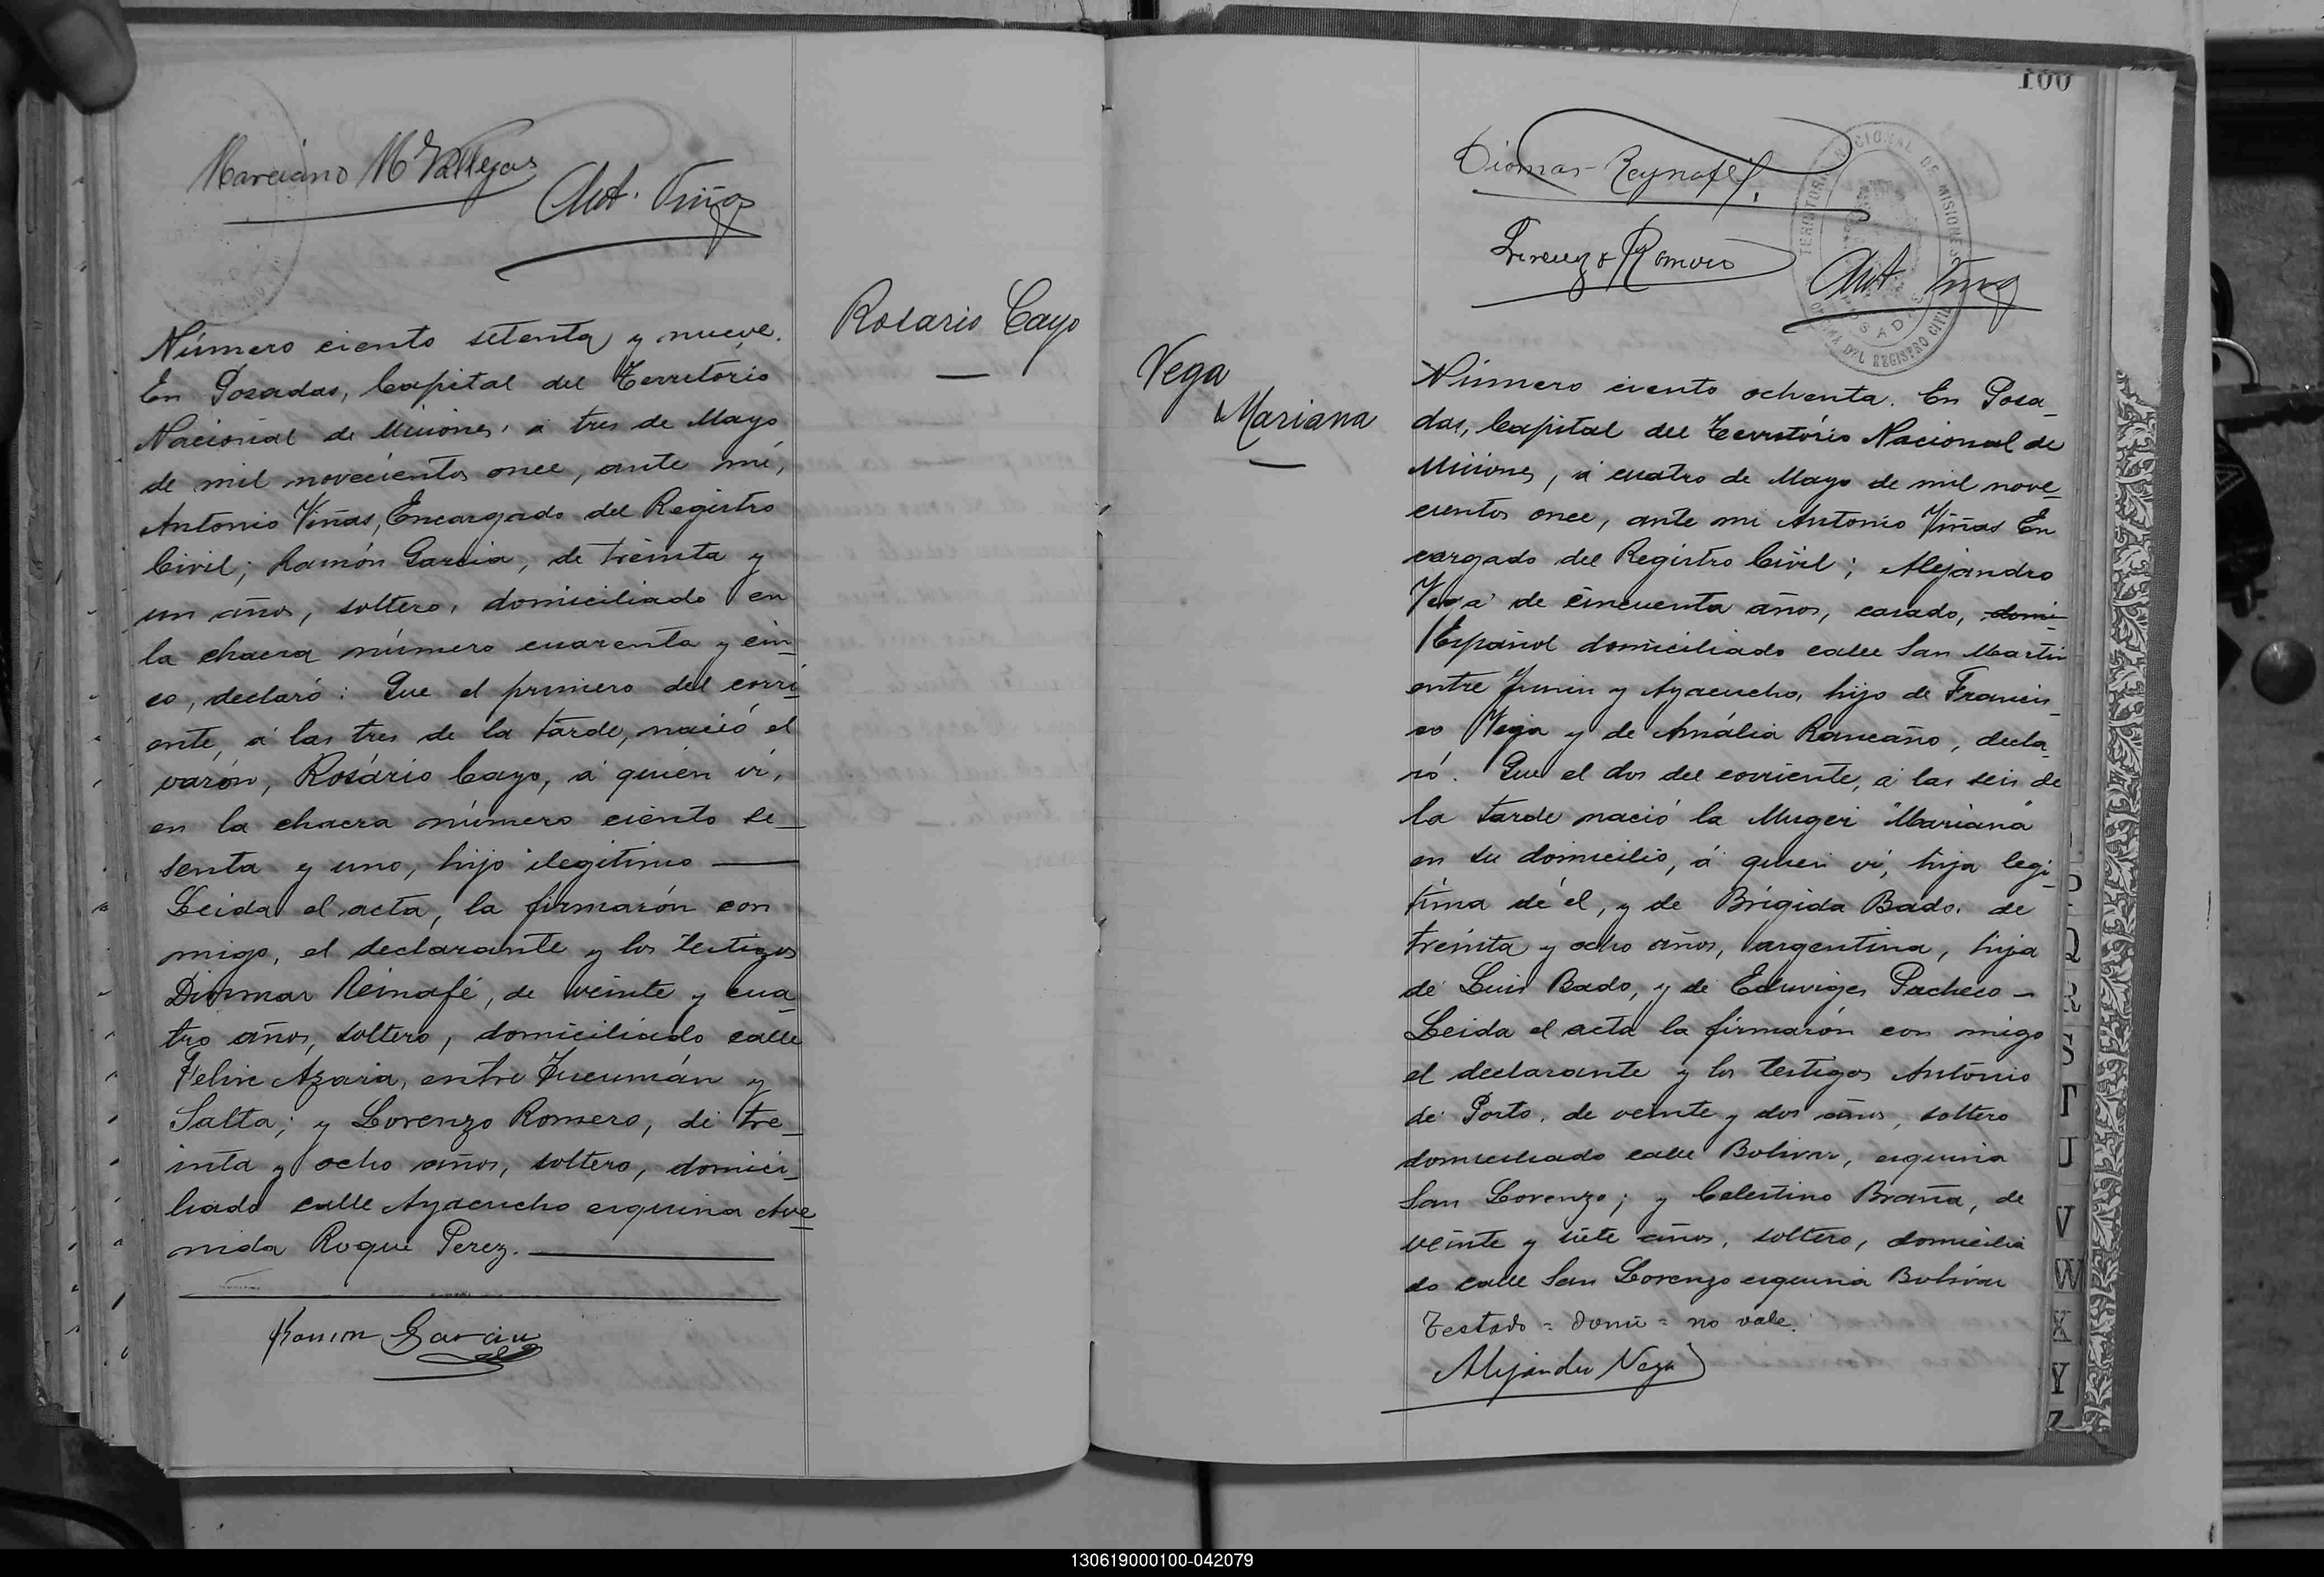 Marciano M Vallejos
Ant. Viñas
Número ciento setenta y nueve.
En Posadas, Capital del Territorio
Nacional de Misiones, á tres de Mayo
de mil novecientos once, ante mi,
Antonio Viñas, Encargado del Registro
Civil; Ramón Garcia, de treinta y
un años, soltero, domiciliado en
la chacra número cuarenta y cin-
co, declaró: Que el primero del corri-
ente, á las tres de la tarde, nació el
varón, Rosário Cayo, á quien vi,
en la chacra número ciento se-
senta y uno, hijo ilegitimo —
Leida el acta, la firmarón con
migo, el declarante y los testigos
Diomar Reinafé, de veinte y cua-
tro años, soltero, domiciliado calle
Felix Azara, entre Tucumán y
Salta; y Lorenzo Romero, de tre-
inta y ocho años, soltero, domici-
liado calle Ayacucho esquina Ave-
nida Roque Perez.
Ramon Garcia
Rosario Cayo
100
Diomar Reynafé
Lorenzo Romero
TERRITORIO NACIONAL DE MISIONES
OFICINA DEL REGISTRO CIVIL
POSADAS
Ant Viñas
Vega
Mariana
Número ciento ochenta. En Posa-
das, Capital del Território Nacional de
Misiones, á cuatro de Mayo de mil nove-
cientos once, ante mi Antonio Viñas En
cargado del Registro Civil; Alejandro
Vega de cincuenta años, casado, domi-
Español domiciliado calle San Martin
entre Junin y Ayacucho, hijo de Francis-
co Vega y de Amália Rancaño, decla-
ró. Que el dos del corriente, á las seis de
la tarde nació la Muger "Mariana"
en su domicilio, á quien vi, hija legi-
tima de él, y de Brígida Bado, de
treinta y ocho años, argentina, hija
de Luis Bado, y de Eduviges Pacheco —
Leida el acta la firmarón con migo
el declarante y los testigos António
de Porto, de veinte y dos años, soltero
domiciliado calle Bolivar, esquina
San Lorenzo; y Celestino Braña, de
veinte y siete años, soltero, domicilia
do calle San Lorenzo esquina Bolivar
Testado = domi = no vale.
Alejandro Vega
P
Q
R
S
T
U
V
W
X
Y
Z
130619000100-042079